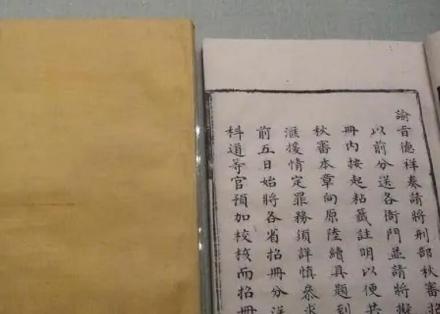 諭旨德祥奏請將刑部秋審招
以前分送各衙門並請將
冊內按起粘籤註明以便共
秋審本章向原陸續具題到
滙擬情定罪務須詳慎叅求
前五日始將各省招冊分送
科道等官預加校核而招冊